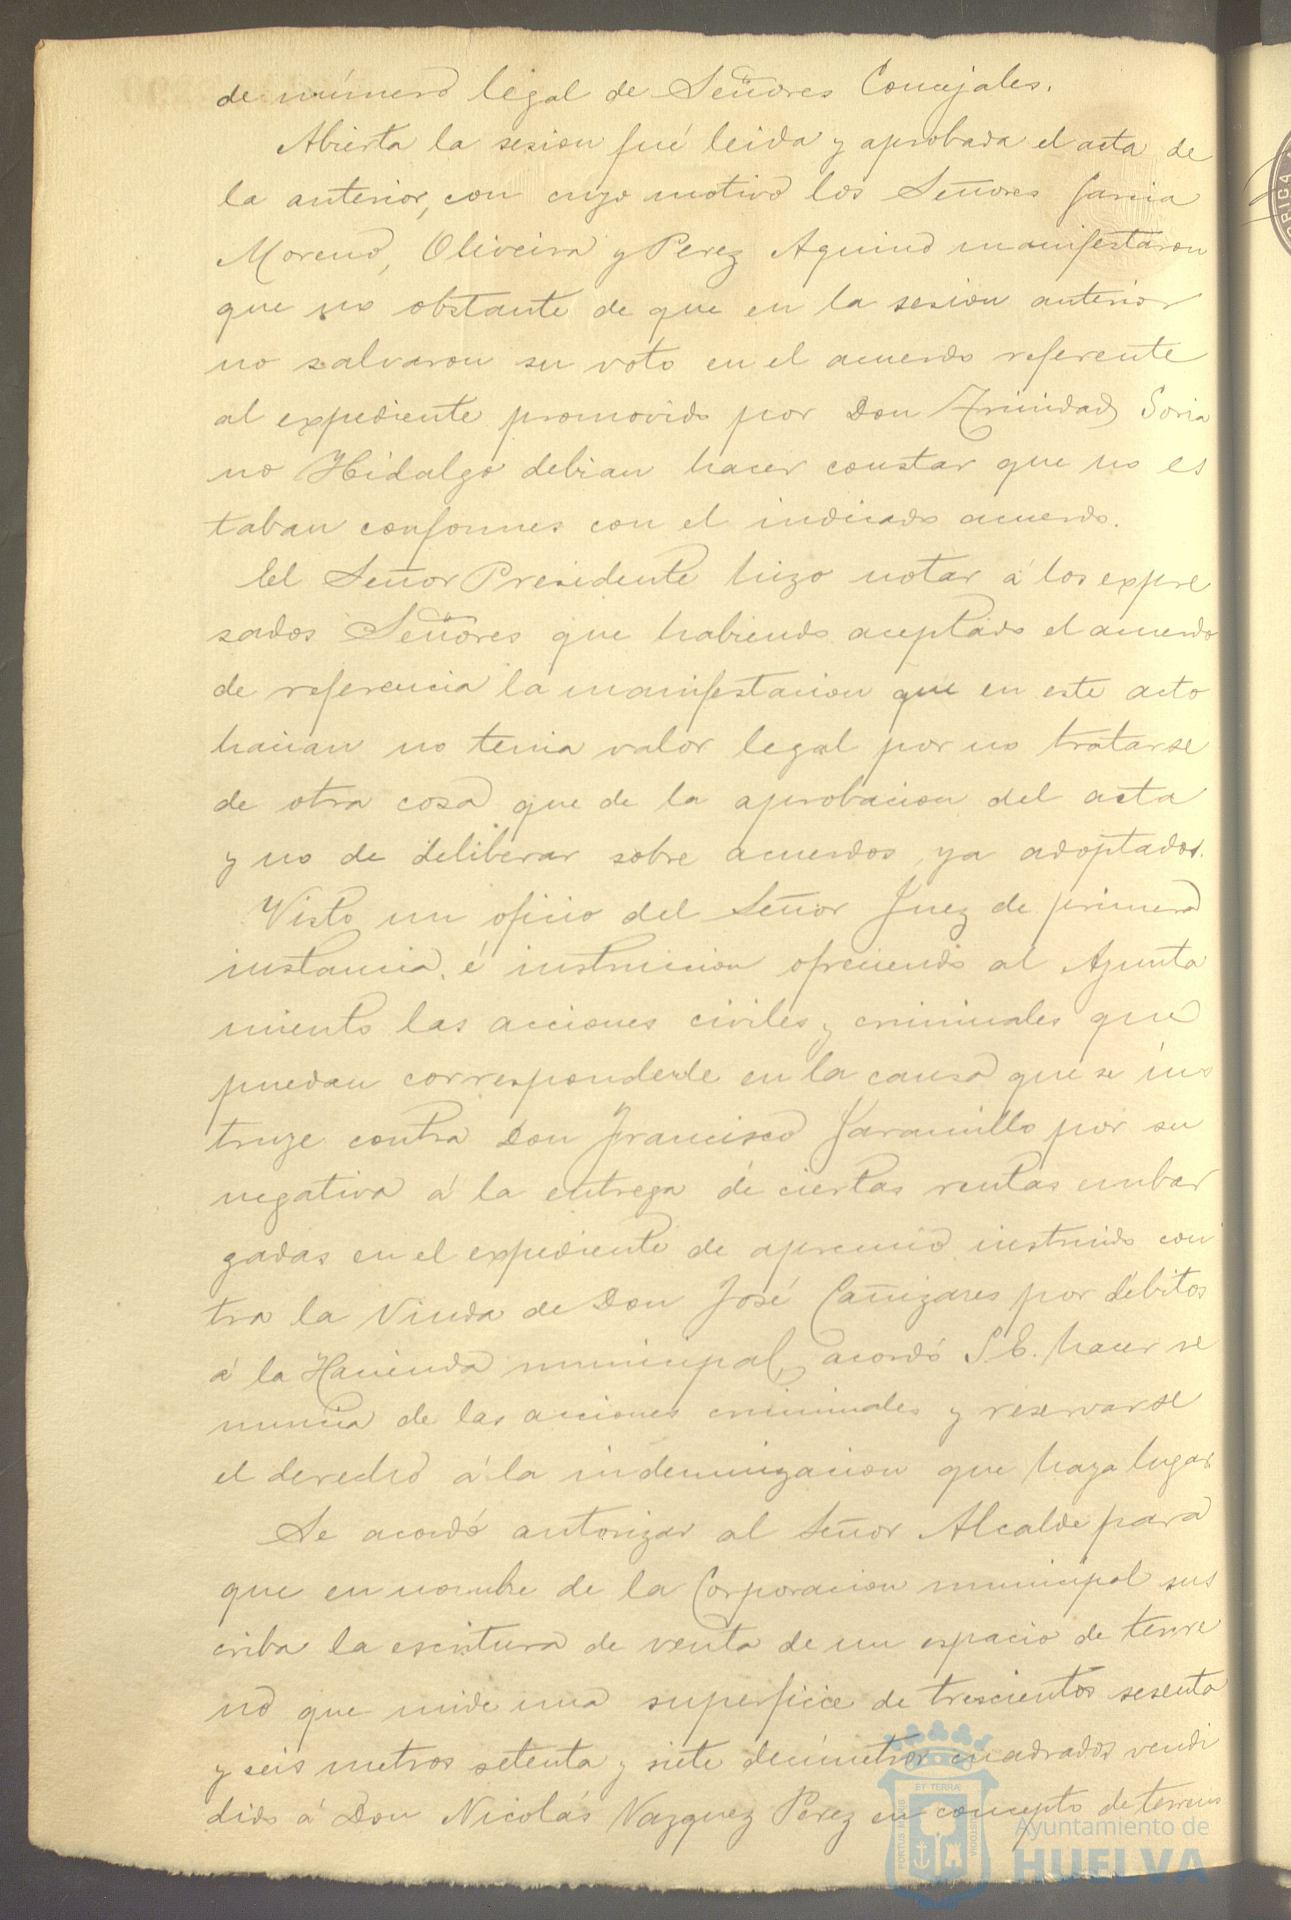 de número legal de Señores Concejales.
Abierta la sesion fué leida y aprobada el acta de
la anterior, con cuyo motivo los Señores Garcia
Moreno, Oliveira y Perez Aquino manifestaron
que no obstante de que en la sesion anterior
no salvaron su voto en el acuerdo referente
al expediente promovido por Don Trinidad Soria
no Hidalgo debian hacer constar que no es
taban conformes con el indicado acuerdo.
El Señor Presidente hizo notar á los expre
sados Señores que habiendo aceptado el acuerdo
de referencia la manifestacion que en este acto
hacian no tenia valor legal por no tratarse
de otra cosa que de la aprobacion del acta
y no de deliberar sobre acuerdos ya adoptados.
Visto un oficio del Señor Juez de primera
instancia é instruccion ofreciendo al Ayunta
miento las acciones civiles y criminales que
puedan corresponderle en la causa que se ins
truye contra Don Francisco Jaramillo por su
negativa á la entrega de ciertas rentas embar
gadas en el expediente de apremio instruido con
tra la Viuda de Don José Cañizares por débitos
á la Hacienda municipal, acordó S.E. hacer re
nuncia de las acciones criminales y reservarse
el derecho á la indemnizacion que haya lugar.
Se acordó autorizar al Señor Alcalde para
que en nombre de la Corporacion municipal sus
criba la escritura de venta de un espacio de terre
no que mide una superficie de trescientos sesenta
y seis metros setenta y siete decímetros cuadrados vendi
dido á Don Nicolás Vazquez Perez en concepto de terreno
ET TERRAE
PORTUS MARIS
CUSTODIA
Ayuntamiento de
HUELVA